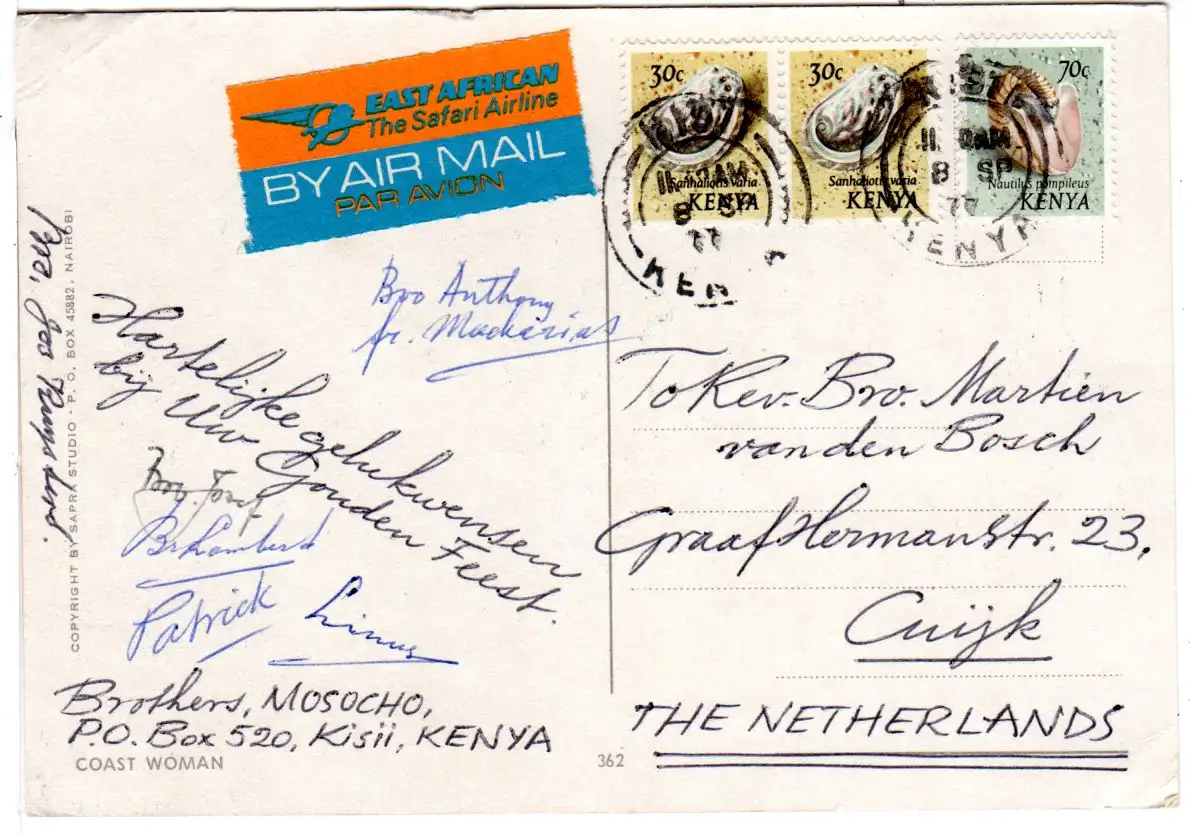 EAST AFRICAN
The Safari Airline
BY AIR MAIL
PAR AVION
30c
Sanhaliotis varia
KENYA
30c
Sanhaliotis varia
KENYA
70c
Nautilus pompileus
KENYA
8 SP
77
KENYA
Bro Anthony
fr. Mackarias
Hartelijke gelukwensen
bij Uw Gouden Feest.
Br Lambert
Patrick
Linus
Brothers, MOSOCHO,
P.O. Box 520, Kisii, KENYA
COAST WOMAN
362
COPYRIGHT BY SAPRA STUDIO - P. O. BOX 45882, NAIROBI
To Rev. Bro. Martien
van den Bosch
Graaf Hermanstr. 23,
Cuijk
THE NETHERLANDS